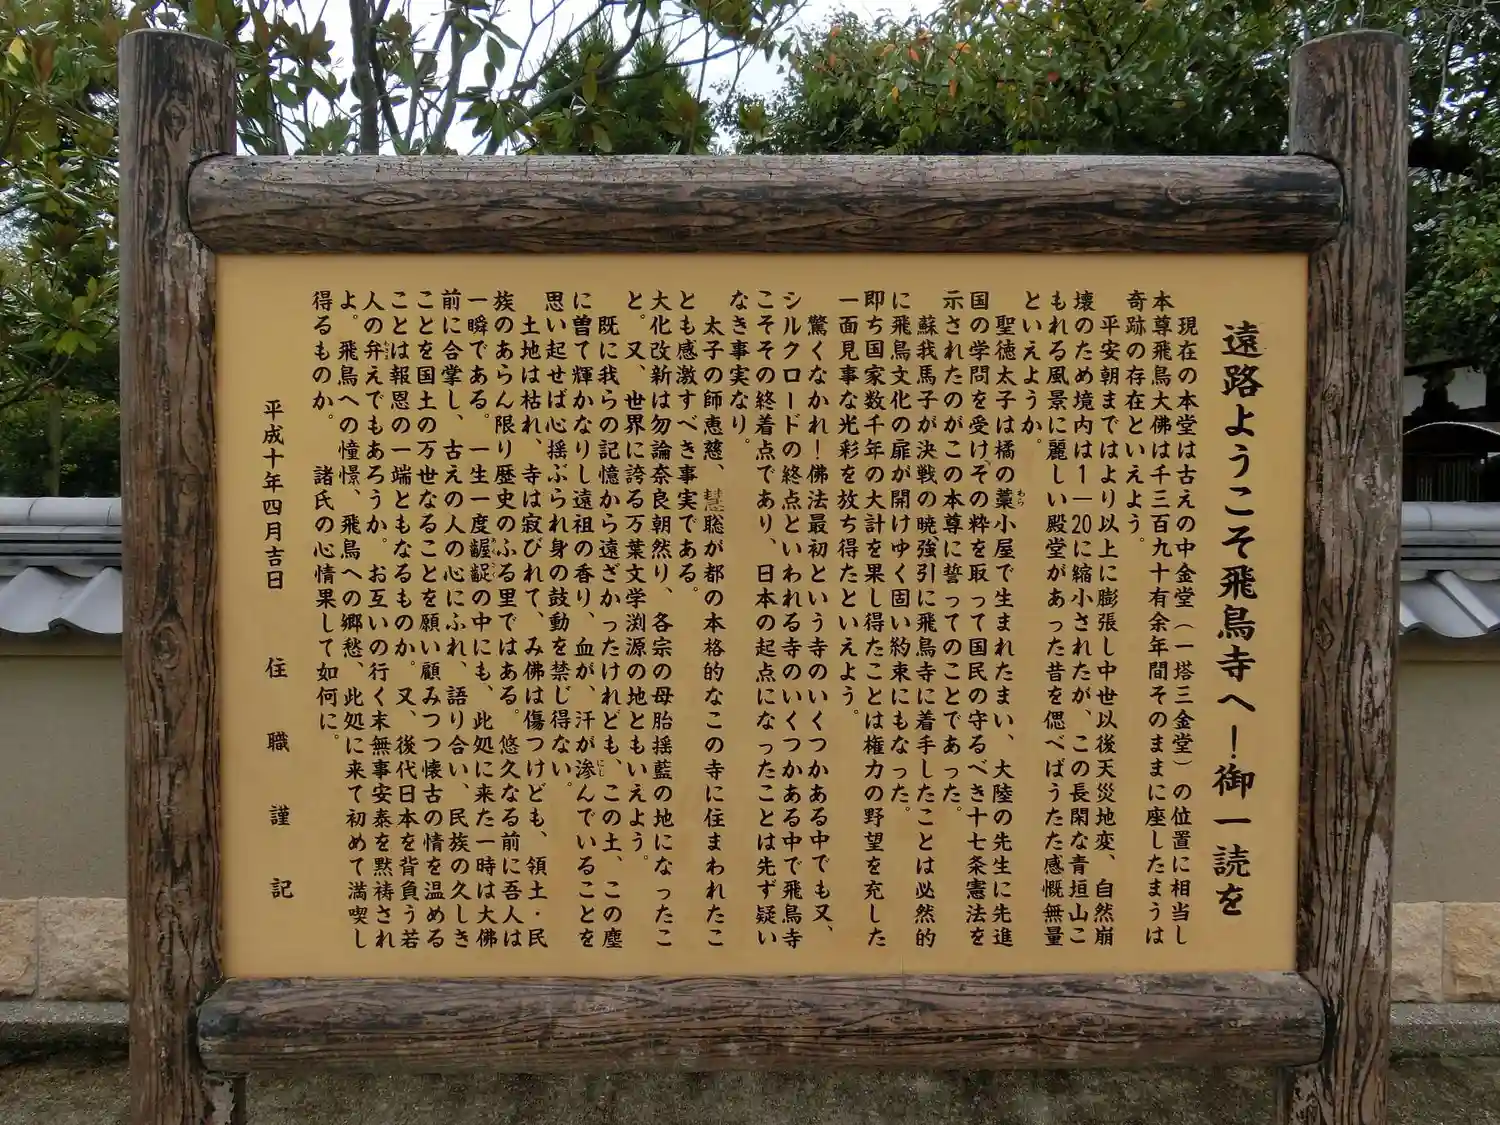 遠路ようこそ飛鳥寺へ！御一読を
現在の本堂は古えの中金堂（一塔三金堂）の位置に相当し
本尊飛鳥大佛は千三百九十有余年間そのままに座したまうは
奇跡の存在といえよう。
平安朝まではより以上に膨張し中世以後天災地変、自然崩
壊のため境内は1―20に縮小されたが、この長閑な青垣山こ
もれる風景に麗しい殿堂があった昔を偲べばうたた感慨無量
といえようか。
聖徳太子は橘の藁小屋で生まれたまい、大陸の先生に先進
わら
国の学問を受け、その粋を取って国民の守るべき十七条憲法を
示されたのがこの本尊に誓ってのことであった。
蘇我馬子が決戦の暁、強引に飛鳥寺に着手したことは必然的
に飛鳥文化の扉が開けゆく固い約束にもなった。
即ち国家数千年の大計を果し得たことは権力の野望を充した
一面見事な光彩を放ち得たといえよう。
驚くなかれ！佛法最初という寺のいくつかある中でも又、
シルクロードの終点といわれる寺のいくつかある中で飛鳥寺
こそその終着点であり、日本の起点になったことは先ず疑い
なき事実なり。
太子の師恵慈、慧聡が都の本格的なこの寺に住まわれたこ
とも感激すべき事実である。
大化改新は勿論奈良朝然り、各宗の母胎揺藍の地になったこ
と。又、世界に誇る万葉文学渕源の地ともいえよう。
既に我らの記憶から遠ざかったけれども、この土、この塵
に曽て輝かなりし遠祖の香り、血が、汗が滲んでいることを
にじ
思い起せば心揺ぶられ身の鼓動を禁じ得ない。
土地は枯れ、寺は寂びれて、み佛は傷つけども、領土・民
族のあらん限り歴史のふる里ではある。悠久なる前に吾人は
一瞬である。一生一度齷齪の中にも、此処に来た一時は大佛
前に合掌し、古えの人の心にふれ、語り合い、民族の久しき
ことを国土の万世なることを願い顧みつつ懐古の情を温める
ことは報恩の一端ともなるものか。又、後代日本を背負う若
人の弁えでもあろうか。お互いの行く末無事安泰を黙祷され
よ。飛鳥への憧憬、飛鳥への郷愁、此処に来て初めて満喫し
得るものか。諸氏の心情果して如何に。
平成十年四月吉日　住職謹記